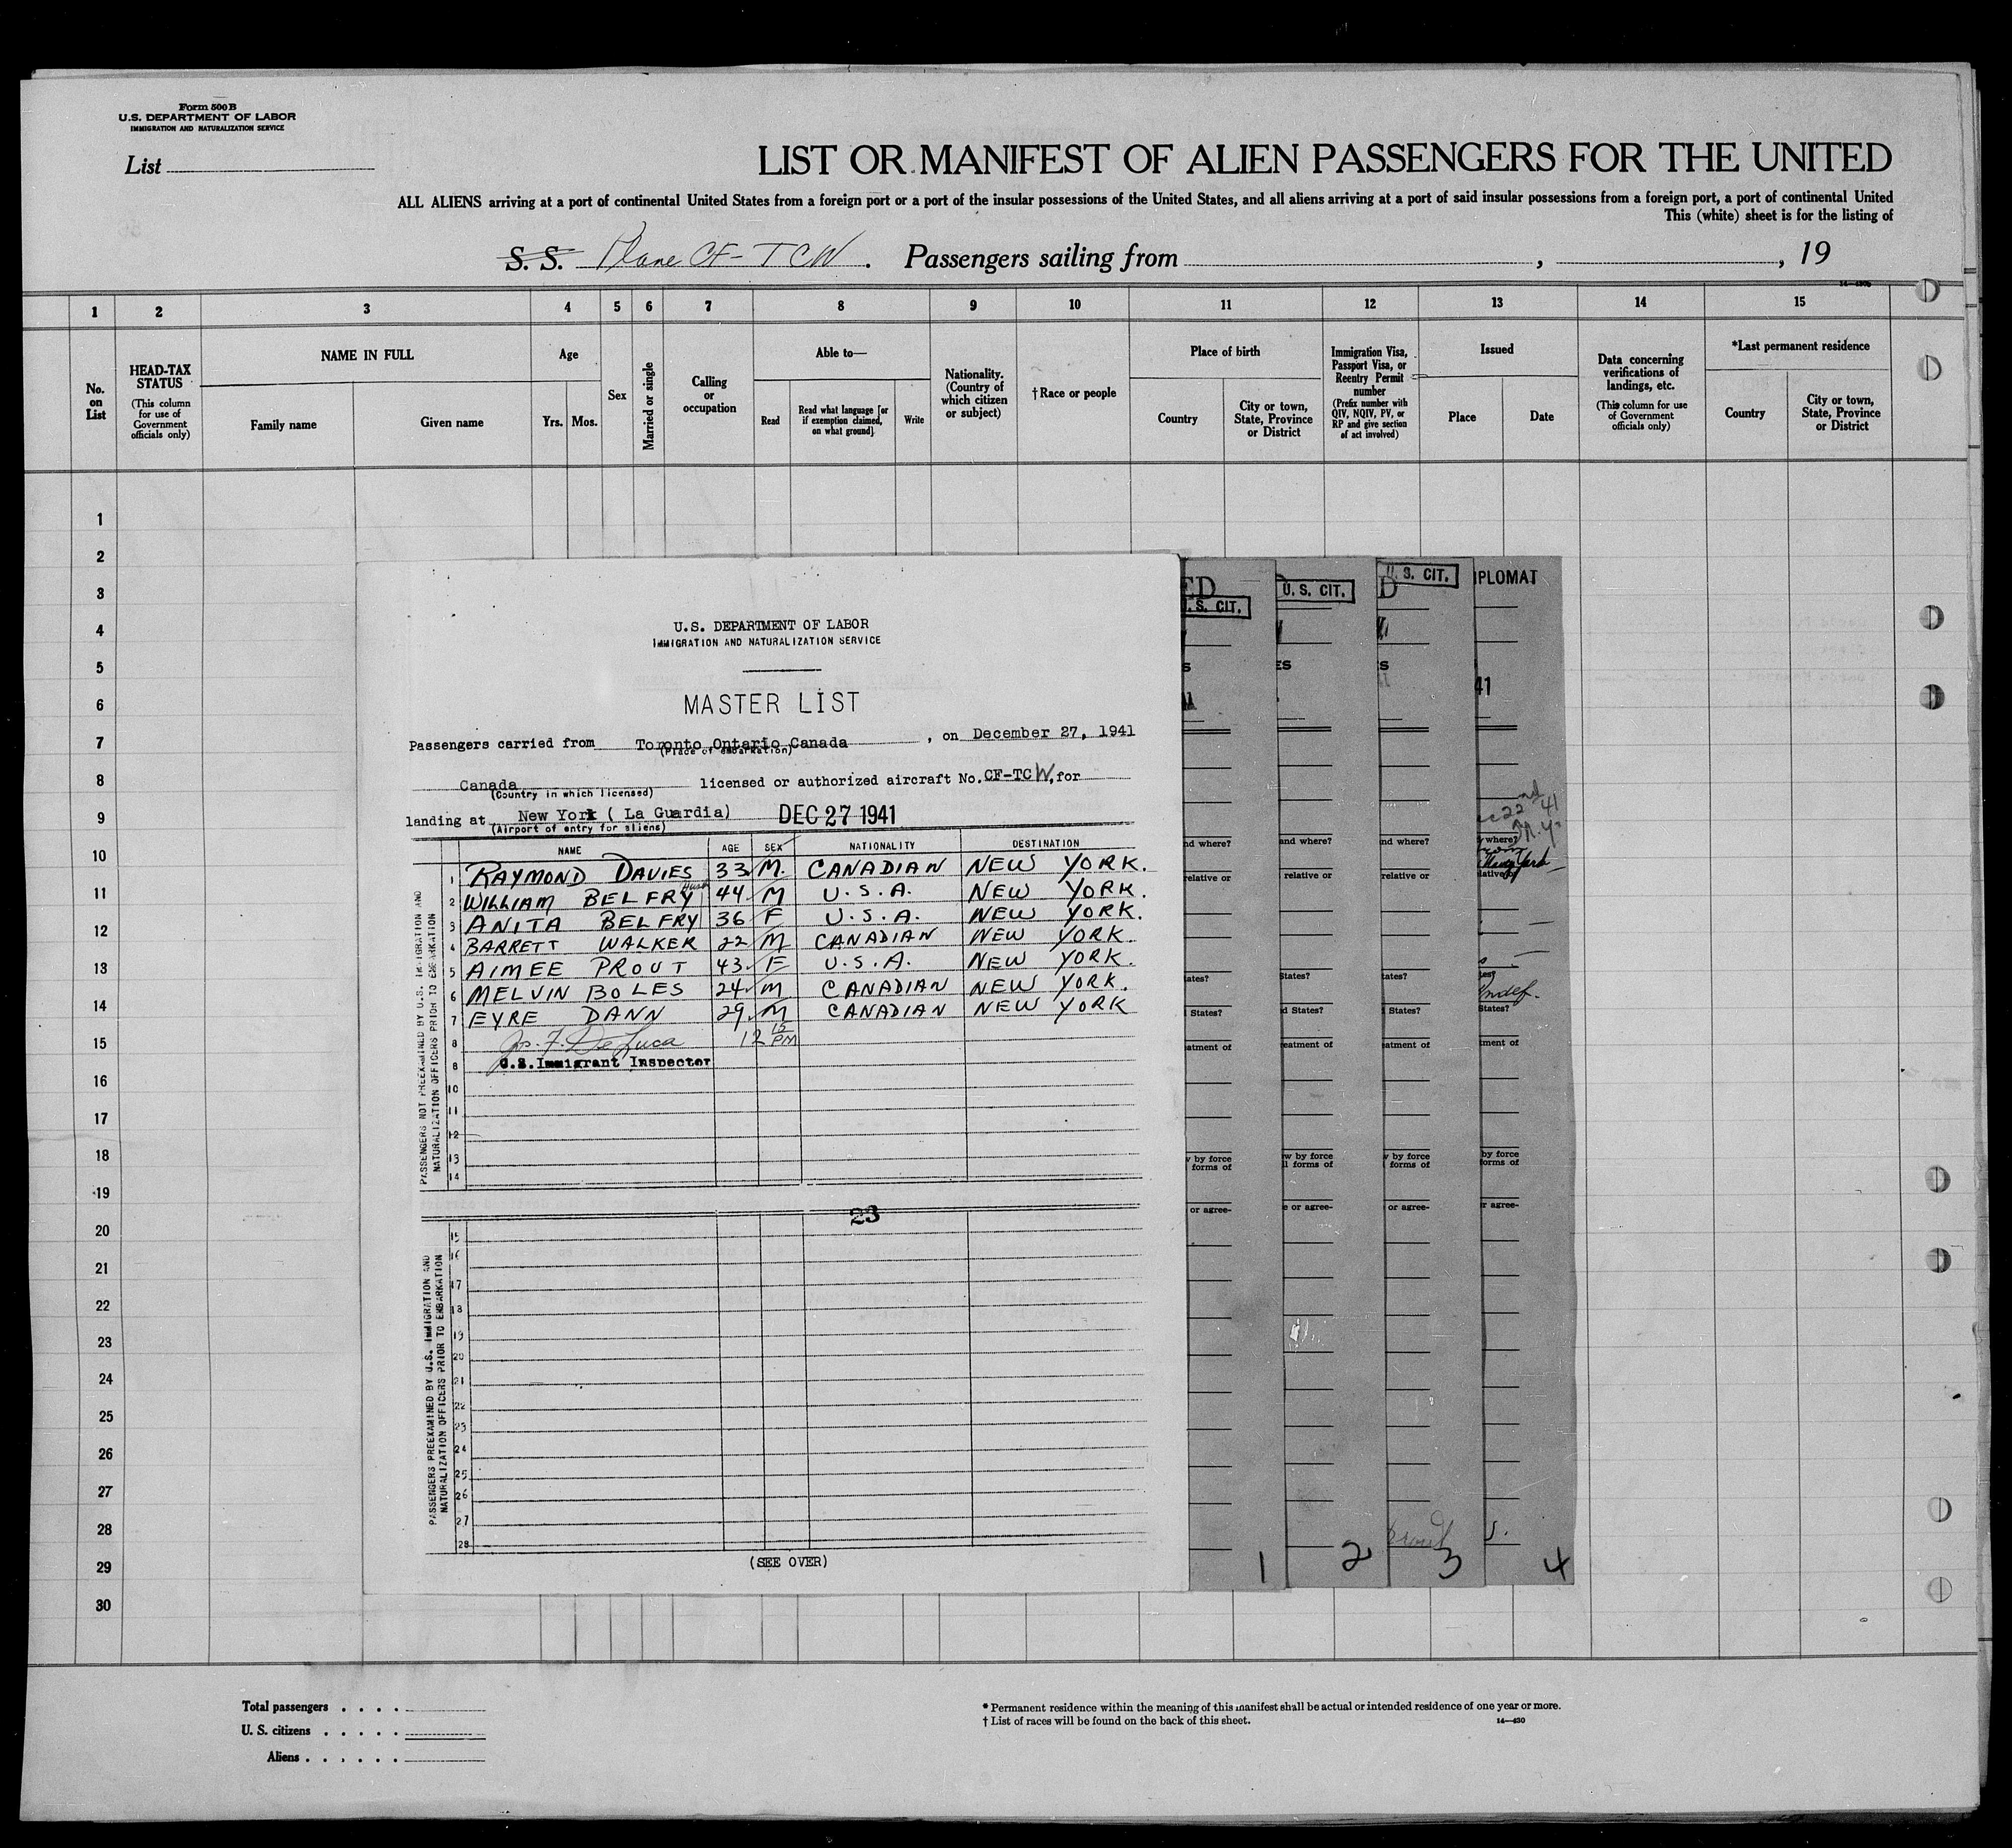 Form 500 B
U.S. DEPARTMENT OF LABOR
IMMIGRATION AND NATURALIZATION SERVICE
List
LIST OR MANIFEST OF ALIEN PASSENGERS FOR THE UNITED
ALL ALIENS arriving at a port of continental United States from a foreign port or a port of the insular possessions of the United States, and all aliens arriving at a port of said insular possessions from a foreign port, a port of continental United
This (white) sheet is for the listing of
S. S. Plane CF-TCW. Passengers sailing from , , 19
1 2 3 4 5 6 7 8 9 10 11 12 13 14 15
No. on List
HEAD-TAX STATUS
(This column for use of Government officials only)
NAME IN FULL
Family name Given name
Age
Yrs. Mos.
Sex
Married or single
Calling or occupation
Able to—
Read
Read what language [or if exemption claimed, on what ground]
Write
Nationality. (Country of which citizen or subject)
†Race or people
Place of birth
Country
City or town, State, Province or District
Immigration Visa, Passport Visa, or Reentry Permit number
(Prefix number with QIV, NQIV, PV, or RP and give section of act involved)
Issued
Place Date
Data concerning verifications of landings, etc.
(This column for use of Government officials only)
*Last permanent residence
Country
City or town, State, Province or District
1
2
3
4
5
6
7
8
9
10
11
12
13
14
15
16
17
18
19
20
21
22
23
24
25
26
27
28
29
30
U.S. DEPARTMENT OF LABOR
IMMIGRATION AND NATURALIZATION SERVICE
MASTER LIST
Passengers carried from Toronto Ontario Canada , on December 27, 1941
(Place of embarkation)
Canada licensed or authorized aircraft No. CF-TCW, for
(Country in which licensed)
landing at New York ( La Guardia) DEC 27 1941
(Airport of entry for aliens)
NAME AGE SEX NATIONALITY DESTINATION
1 RAYMOND DAVIES 33 M. CANADIAN NEW YORK.
2 WILLIAM BELFRY 44 M U.S.A. NEW YORK.
3 ANITA BELFRY 36 F U.S.A. NEW YORK.
4 BARRETT WALKER 22 M CANADIAN NEW YORK.
5 AIMEE PROUT 43 F U.S.A. NEW YORK.
6 MELVIN BOLES 24 M CANADIAN NEW YORK.
7 EYRE DANN 29 M CANADIAN NEW YORK
8 Jos. F. De Luca 12 15 PM
U.S. Immigrant Inspector
10
11
12
13
14
PASSENGERS NOT PREEXAMINED BY U.S. IMMIGRATION AND
NATURALIZATION OFFICERS PRIOR TO EMBARKATION
23
15
16
17
18
19
20
21
22
23
24
25
26
27
28
PASSENGERS PREEXAMINED BY U.S. IMMIGRATION AND
NATURALIZATION OFFICERS PRIOR TO EMBARKATION
(SEE OVER)
U. S. CIT.
U. S. CIT.
and where?
relative or
States?
d States?
eatment of
w by force
forms of
or agree-
1
2
3
4
Total passengers . . . .
U. S. citizens . . . . .
Aliens . . . . . .
* Permanent residence within the meaning of this manifest shall be actual or intended residence of one year or more.
† List of races will be found on the back of this sheet.
14—430